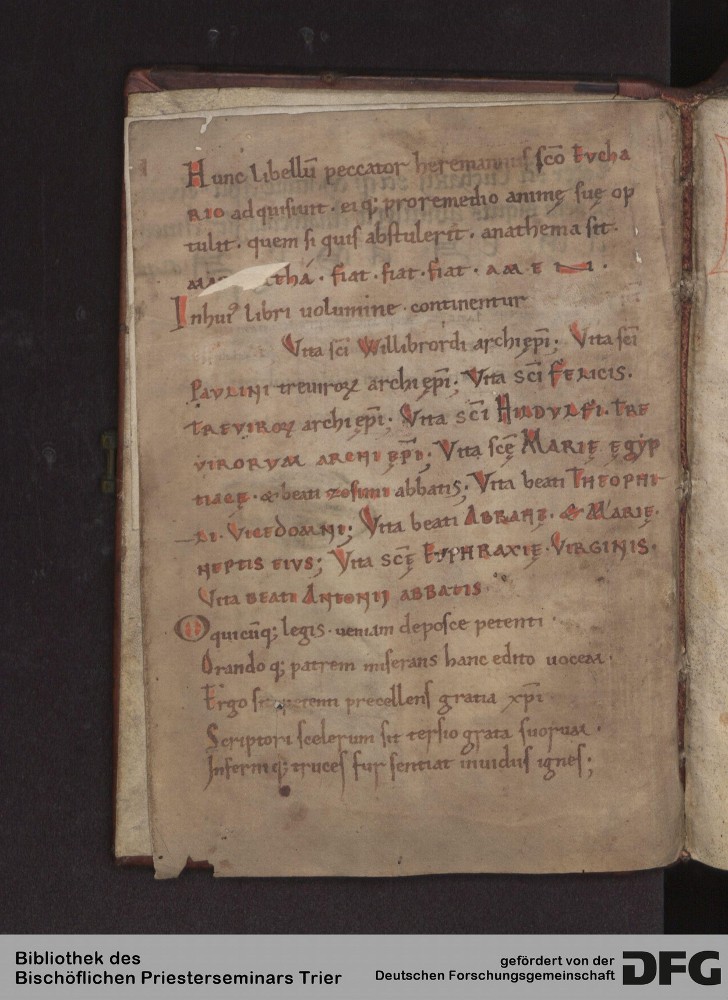 Hunc libellū peccator heremannus sc̄o Eucha
RIO adquisiuit · eiq; pro remedio animę suę op
tulit · quem si quis abstulerit · anathema sit ·
thá · fiat · fiat · fiat · AMEN ·
In hui᾽ libri uolumine · continentur
Vita sc̄i Willibrordi archiep̄i; Vita sc̄i
PAVLINI treuiroꝝ archiep̄i; Vita sc̄i FELICIS ·
TREVIROꝝ archiep̄i · Vita sc̄i HILDVLFI · TRE
VIRORVM ARCHIEP̄I; Vita sc̄ę MARIĘ ęgyp
tiacę · & beati zosimi abbatis; Vita beati THEOPHI
LI · VICEDOMNI; Vita beati ABRAHĘ · & MARIĘ ·
NEPTIS EIVS; Vita sc̄ę EVPHRAXIĘ · VIRGINIS ·
Vita BEATI ANTONII ABBATIS
O quicūq; legis · ueniam deposce petenti ·
Orandoq; patrem miserans hanc edito uocem ·
Ergo sit petenti precellens gratia xp̄i
Scriptori scelerum sit tersio grata suorum ·
Infernıq; truces fur sentiat inuidus ignes;
Bibliothek des
Bischöflichen Priesterseminars Trier
gefördert von der
Deutschen Forschungsgemeinschaft
DFG